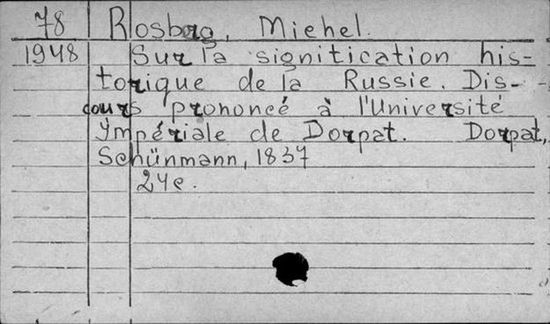 78 Rosberg, Michel.
1948 Sur la signitication his-
torique de la Russie. Dis-
cours prononcé à l'Université
Impériale de Dorpat. Dorpat,
Schünmann, 1837
24 c.